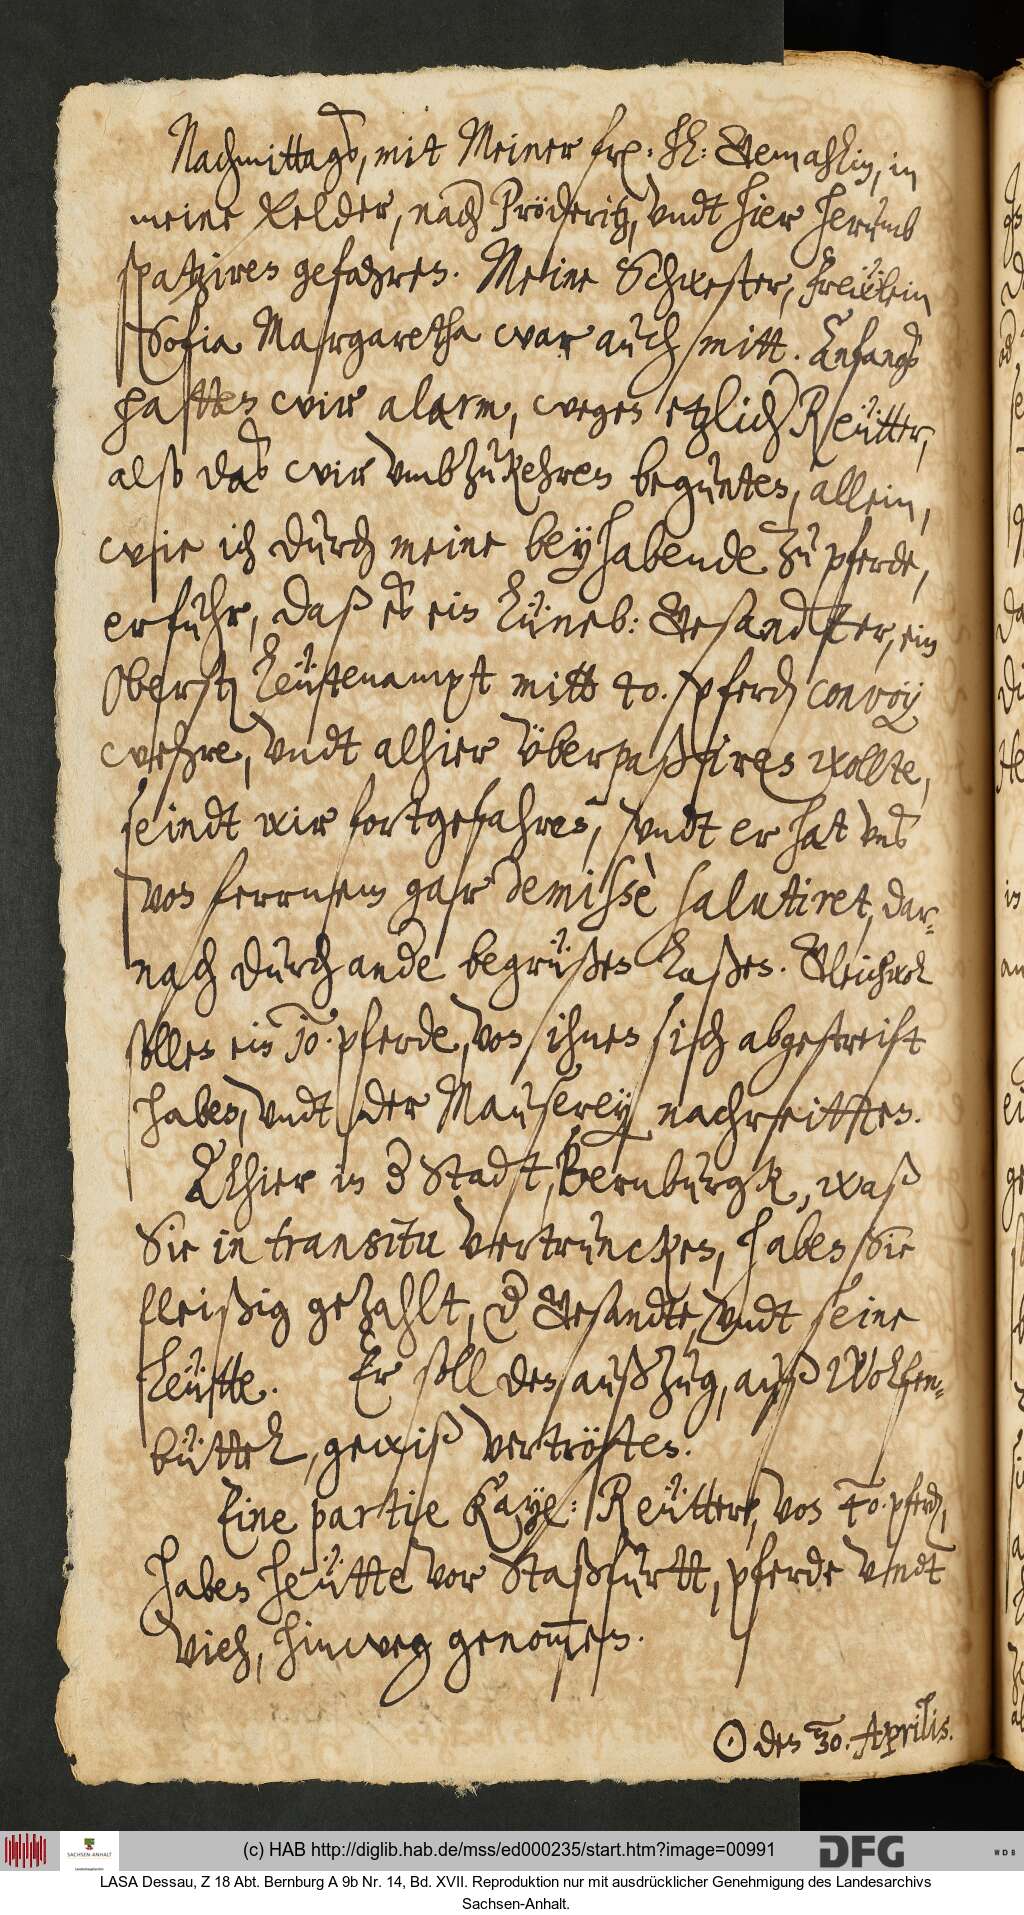 Nachmittags, mit Meiner frl: hl: Gemahlin, in
meine Felder, nach Pröderitz, vndt hier herumb
spatziren gefahren. Meine Schwester, Freẅlein
Sofia Margaretha war auch mitt. Anfangs
hatten wir alarm, wegen etzlicher Reütter,
also das wir vmbzukehren begunten, allein,
wie ich durch meine beyhabende zu pferde,
erfuhr, daß es ein Lüneb: Gesandter, ein
Oberster leüttenampt mitt 40. pferden convoy
wehre, vndt alhier überpaßiren wollte,
seindt wir fortgefahren, vndt er hat vns
von ferrnem gar demissè salutiret, dar=
nach durch ande begrüßen laßen. Gleichwol
sollen ein 10. pferde, von ihnen sich abgestreift
haben, vndt der Mauserey nachreitten.
Alhier in d Stadt, Bernburgk, waß
Sie in transitu vertruncken, haben sie
fleißig gezahlt, d Gesandte, vndt seine
Leütte. Er soll den außzug, auß Wolfen=
büttel, gewiß vertrösten.
Eine partie Kaye: Reütter, von 40. pferden,
haben heütte vor Staßfurtt, pferde vndt
vieh, hinweg genommen.
☉ den 30. Aprilis.
(c) HAB http://diglib.hab.de/mss/ed000235/start.htm?image=00991
DFG
SACHSEN-ANHALT
WDB
LASA Dessau, Z 18 Abt. Bernburg A 9b Nr. 14, Bd. XVII. Reproduktion nur mit ausdrücklicher Genehmigung des Landesarchivs
Sachsen-Anhalt.